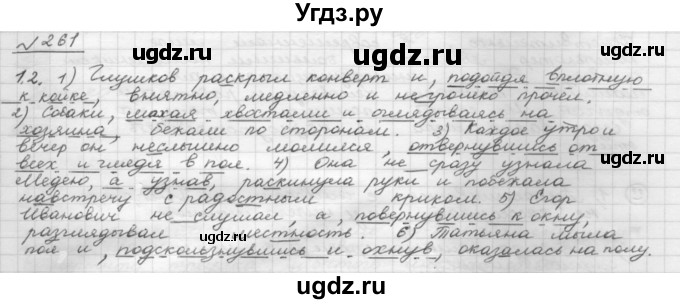 Угдз.ру
№ 261
1.2. 1) Глушков раскрыл конверт и, подойдя вплотную
к койке, внятно, медленно и негромко прочёл.
2) Собаки, махая хвостами и оглядываясь на
хозяина, бежали по сторонам. 3) Каждое утро и
вечер он неслышно молился, отвернувшись от
всех и глядя в пол. 4) Она не сразу узнала
Медею, а узнав, раскинула руки и побежала
навстречу с радостным криком. 5) Егор
Иванович не слушал, а, повернувшись к окну,
разглядывал местность. 6) Татьяна мыла
пол и, подскользнувшись и охнув, оказалась на полу.
ugdz.ru
ugdz.ru
ugdz.ru
ugdz.ru
ugdz.ru
ugdz.ru
ugdz.ru
ugdz.ru
ugdz.ru
ugdz.ru
ugdz.ru